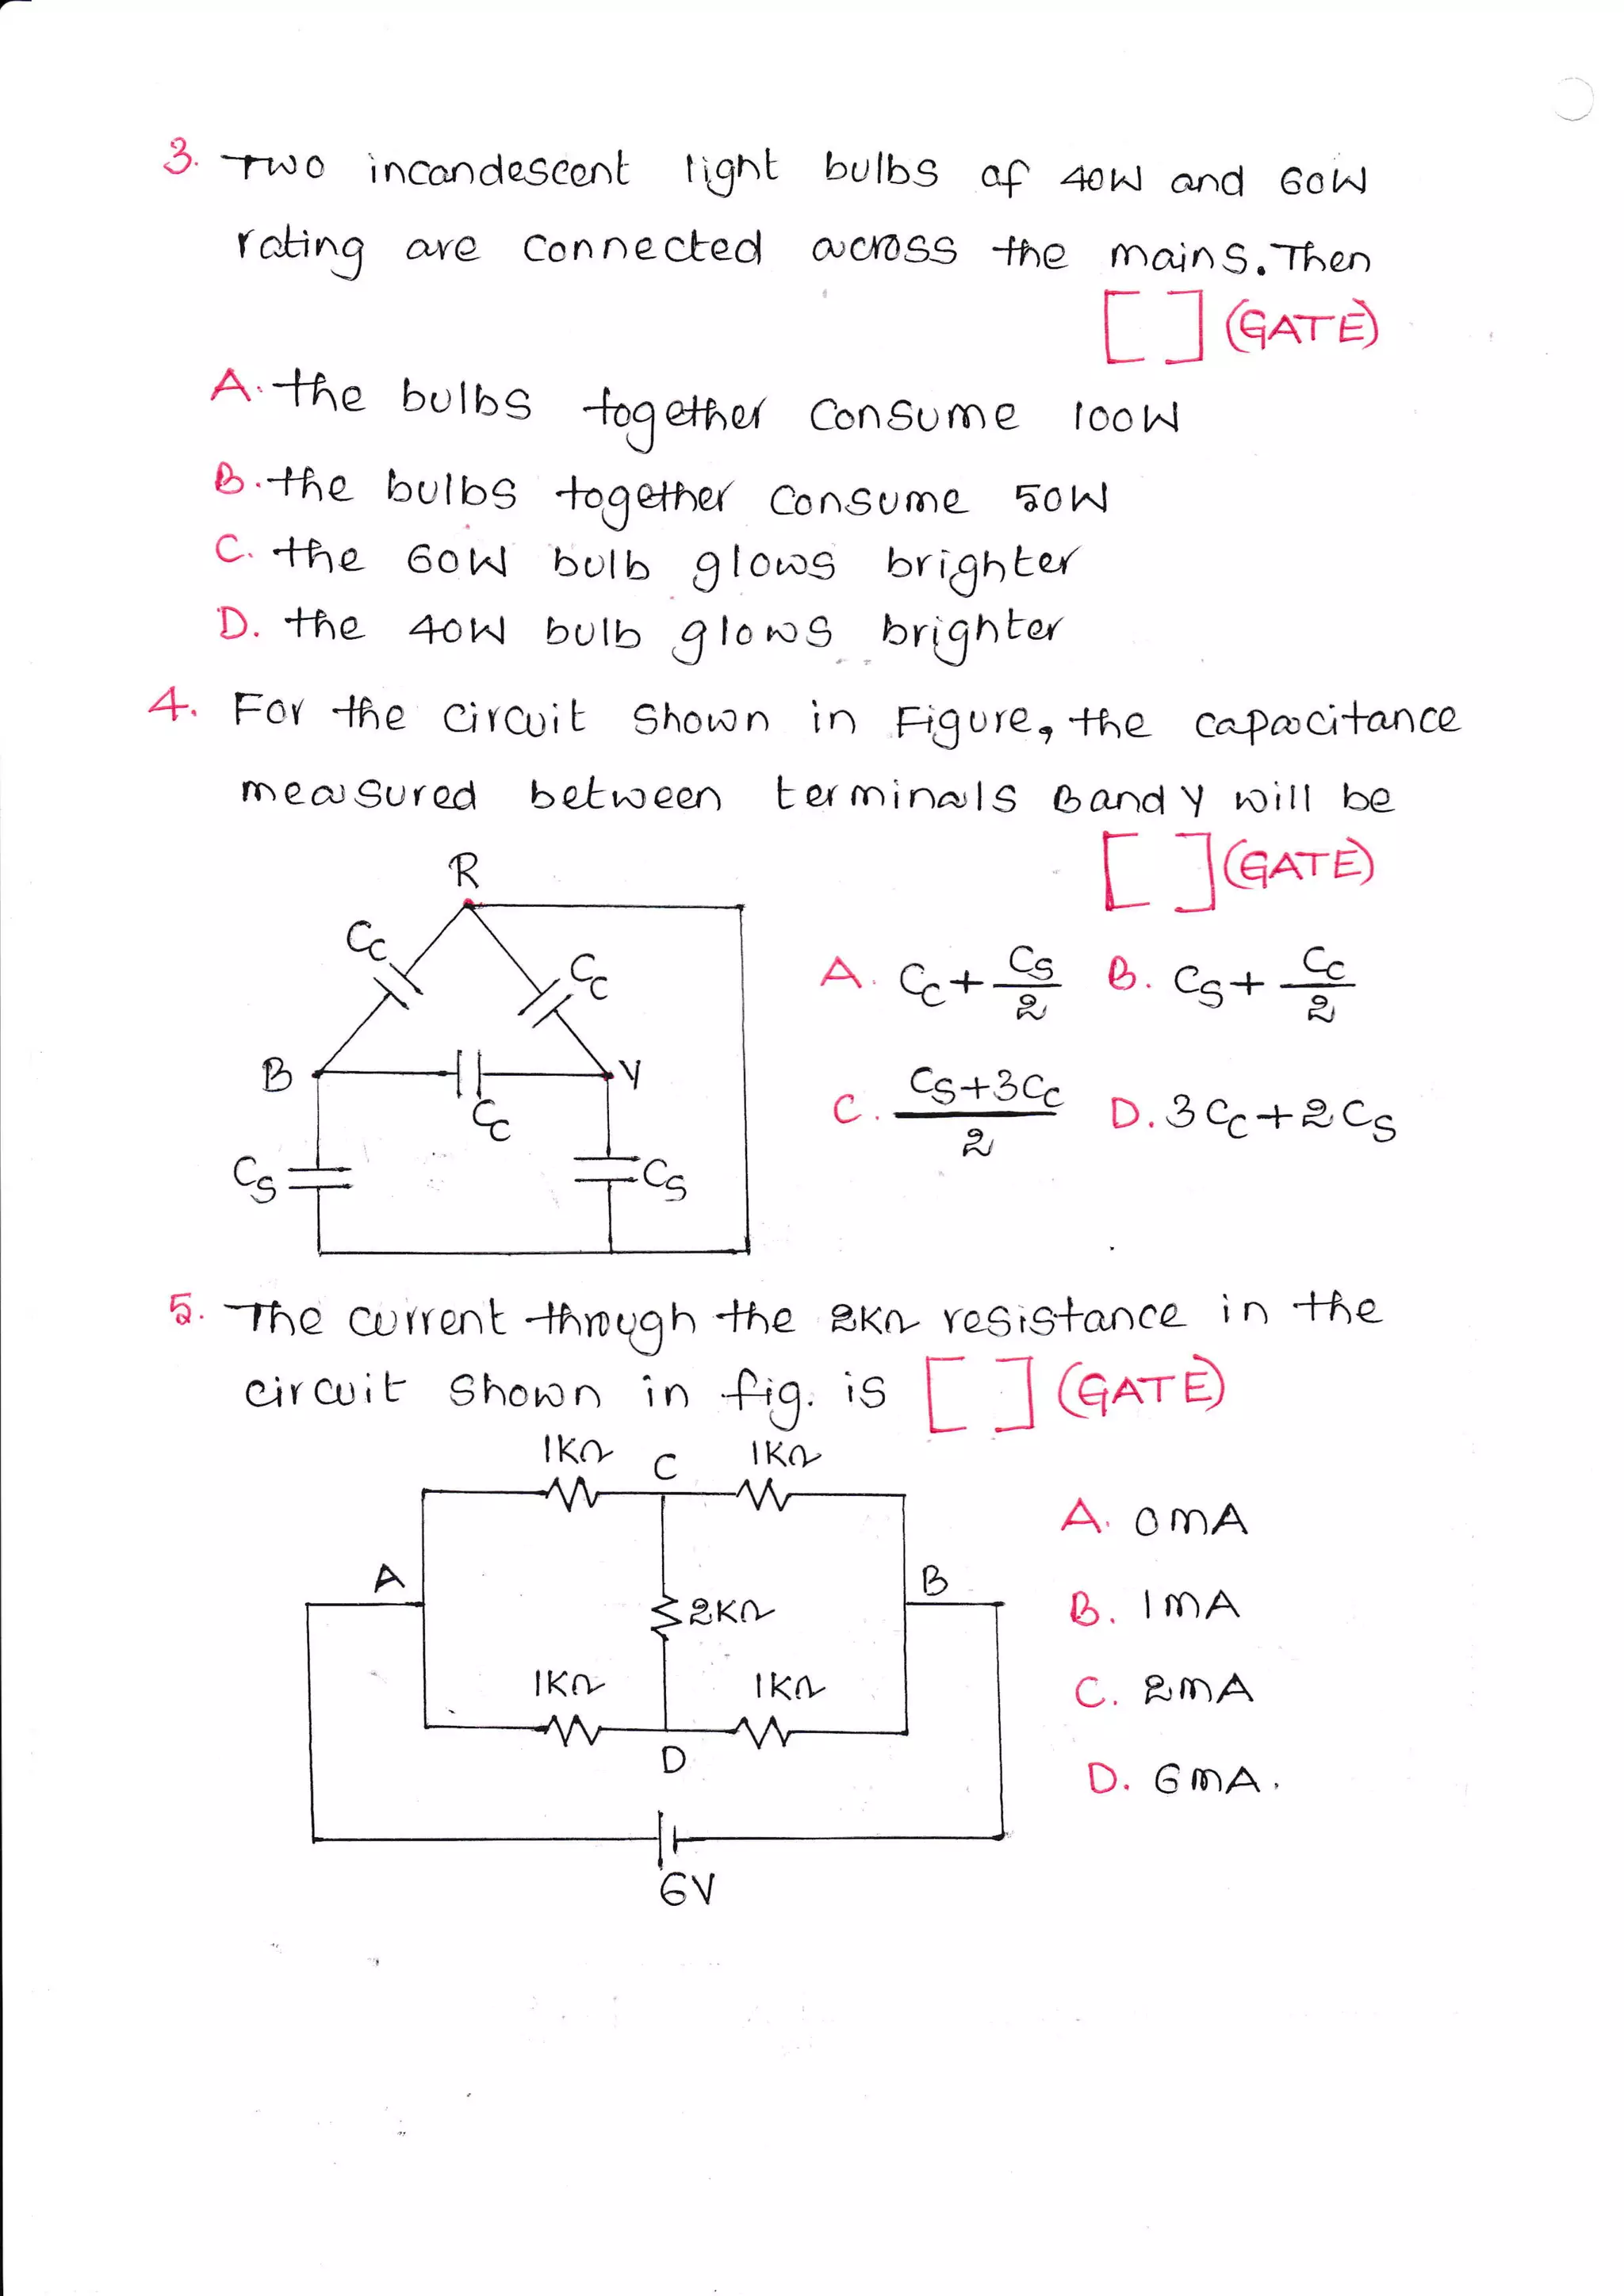 3. Two incandescent light bulbs of 40W and 60W
rating are connected across the mains. Then
[ ] (GATE)
A. the bulbs together consume 100W
B. the bulbs together consume 50W
C. the 60W bulb glows brighter
D. the 40W bulb glows brighter
4. For the circuit shown in Figure, the capacitance
measured between terminals B and Y will be
[ ] (GATE)
R
Cc
Cc
B
Y
Cc
Cs
Cs
A. Cc + Cs/2 B. Cs + Cc/2
C. Cs+3Cc/2 D. 3Cc+2Cs
5. The current through the 2KΩ resistance in the
circuit shown in fig. is [ ] (GATE)
1KΩ C 1KΩ
A
B
2KΩ
1KΩ 1KΩ
D
6V
A. 0mA
B. 1mA
C. 2mA
D. 6mA.